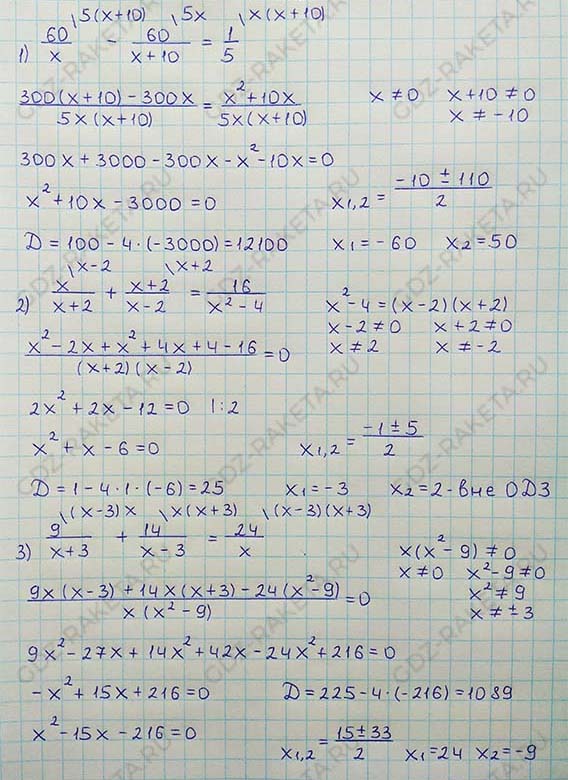 \5(x+10) \5x \x(x+10)
1) 60/x - 60/(x+10) = 1/5
(300(x+10) - 300x)/(5x(x+10)) = (x²+10x)/(5x(x+10)) x ≠ 0 x+10 ≠ 0
x ≠ -10
300x + 3000 - 300x - x² - 10x = 0
x² + 10x - 3000 = 0 x₁,₂ = (-10 ± 110)/2
D = 100 - 4 · (-3000) = 12100 x₁ = -60 x₂ = 50
\x-2 \x+2
2) x/(x+2) + (x+2)/(x-2) = 16/(x²-4) x² - 4 = (x-2)(x+2)
x - 2 ≠ 0 x + 2 ≠ 0
x ≠ 2 x ≠ -2
(x² - 2x + x² + 4x + 4 - 16)/((x+2)(x-2)) = 0
2x² + 2x - 12 = 0 |:2
x² + x - 6 = 0 x₁,₂ = (-1 ± 5)/2
D = 1 - 4 · 1 · (-6) = 25 x₁ = -3 x₂ = 2 - вне ОДЗ
\(x-3)x \x(x+3) \(x-3)(x+3)
3) 9/(x+3) + 14/(x-3) = 24/x
x(x²-9) ≠ 0
x ≠ 0 x² - 9 ≠ 0
x² ≠ 9
x ≠ ±3
(9x(x-3) + 14x(x+3) - 24(x²-9))/(x(x²-9)) = 0
9x² - 27x + 14x² + 42x - 24x² + 216 = 0
-x² + 15x + 216 = 0 D = 225 - 4 · (-216) = 1089
x² - 15x - 216 = 0 x₁,₂ = (15 ± 33)/2 x₁ = 24 x₂ = -9
GDZ-RAKETA.RU